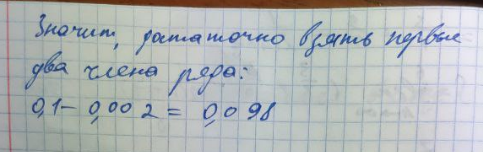 Значит, достаточно взять первые
два члена ряда:
0,1 - 0,002 = 0,098